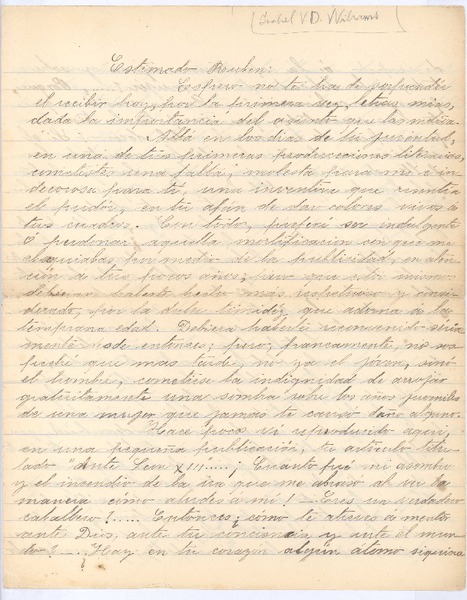 (Isabel V. D. Wibrams)
Estimado Ruben:
Espero no te ha de sorprender
el recibir hoy, por la primera vez, letras mias,
dada la importancia del asunto que las motiva.
Allá en los dias de tu juventud,
en una de tus primeras producciones literarias,
cometiste una falta, molesta para mi é in-
decorosa para ti, una inventiva que
el pudor, en tu afán de dar colores vivos á
tus cuadros. Con todo, preferí ser indulgente
ó perdonar aquella mortificacion con que me
por medio de la publicidad, en aten-
ción de tus pocos años; pero que esto mismo
debieran haberte hecho mas respetuoso y consi-
derado, por la dulce timidez que adorna á la
temprana edad. Debiera haberte reconvenido séria-
mente desde entonces; pero, francamente, no sos-
peché que mas tarde, no ya el joven, sinó
el hombre, cometiese la indignidad de arrojar
gratuitamente una sombra sobre los años juveniles
de una mujer que jamas te causó daño alguno.
Hace poco vi reproducido aquí,
en una pequeña publicación, tu artículo titu-
lado "Ante Leon XIII.....; Cuánto fué mi asombro
y el incendio de la ira que me abrasó al ver la
manera cómo aludes á mí! — Eres un verdadero
caballero?..... Entónces ¿cómo te atreves á mentir
ante Dios, ante tu conciencia y ante el mun-
do? —..... ¿Hay en tu corazon algún átomo siquiera